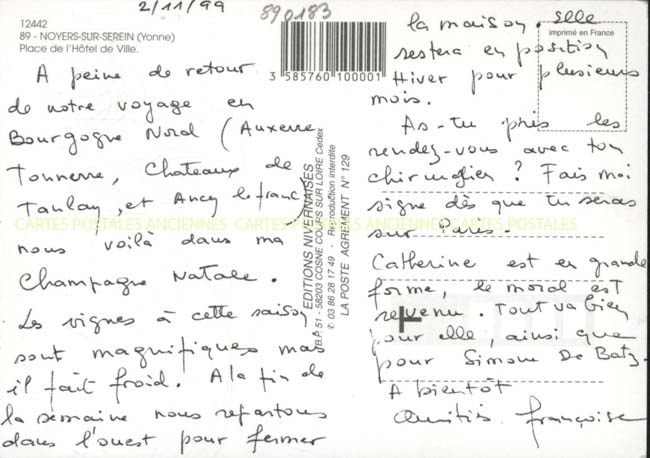 2/11/99
890183
12442
89 - NOYERS-SUR-SEREIN (Yonne)
Place de l'Hôtel de Ville.
3 585760 100001
imprimé en France
A peine de retour
de notre voyage en
Bourgogne Nord (Auxerre
Tonnerre, Chateaux de
Tanlay, et Ancy le franc
nous voilà dans ma
Champagne Natale.
Les vignes à cette saison
sont magnifiques mais
il fait froid. A la fin de
la semaine nous repartons
dans l'ouest pour fermer
EDITIONS NIVERNAISES
B.P. 51 - 58203 COSNE COURS SUR LOIRE Cedex
✆ 03 86 28 17 49 - Reproduction interdite
LA POSTE AGREMENT N° 129
la maison. Elle
restera en position
Hiver pour plusieurs
mois.
As-tu pris les
rendez-vous avec ton
chirurgien ? Fais moi
signe dès que tu seras
sur Paris.
Catherine est en grande
forme, le moral est
revenu. Tout va bien
pour elle, ainsi que
pour Simone De Batz.
A bientôt
Amitiés. françoise
CARTES POSTALES ANCIENNES CARTES POSTALES ANCIENNES CARTES POSTALES ANCIENNES